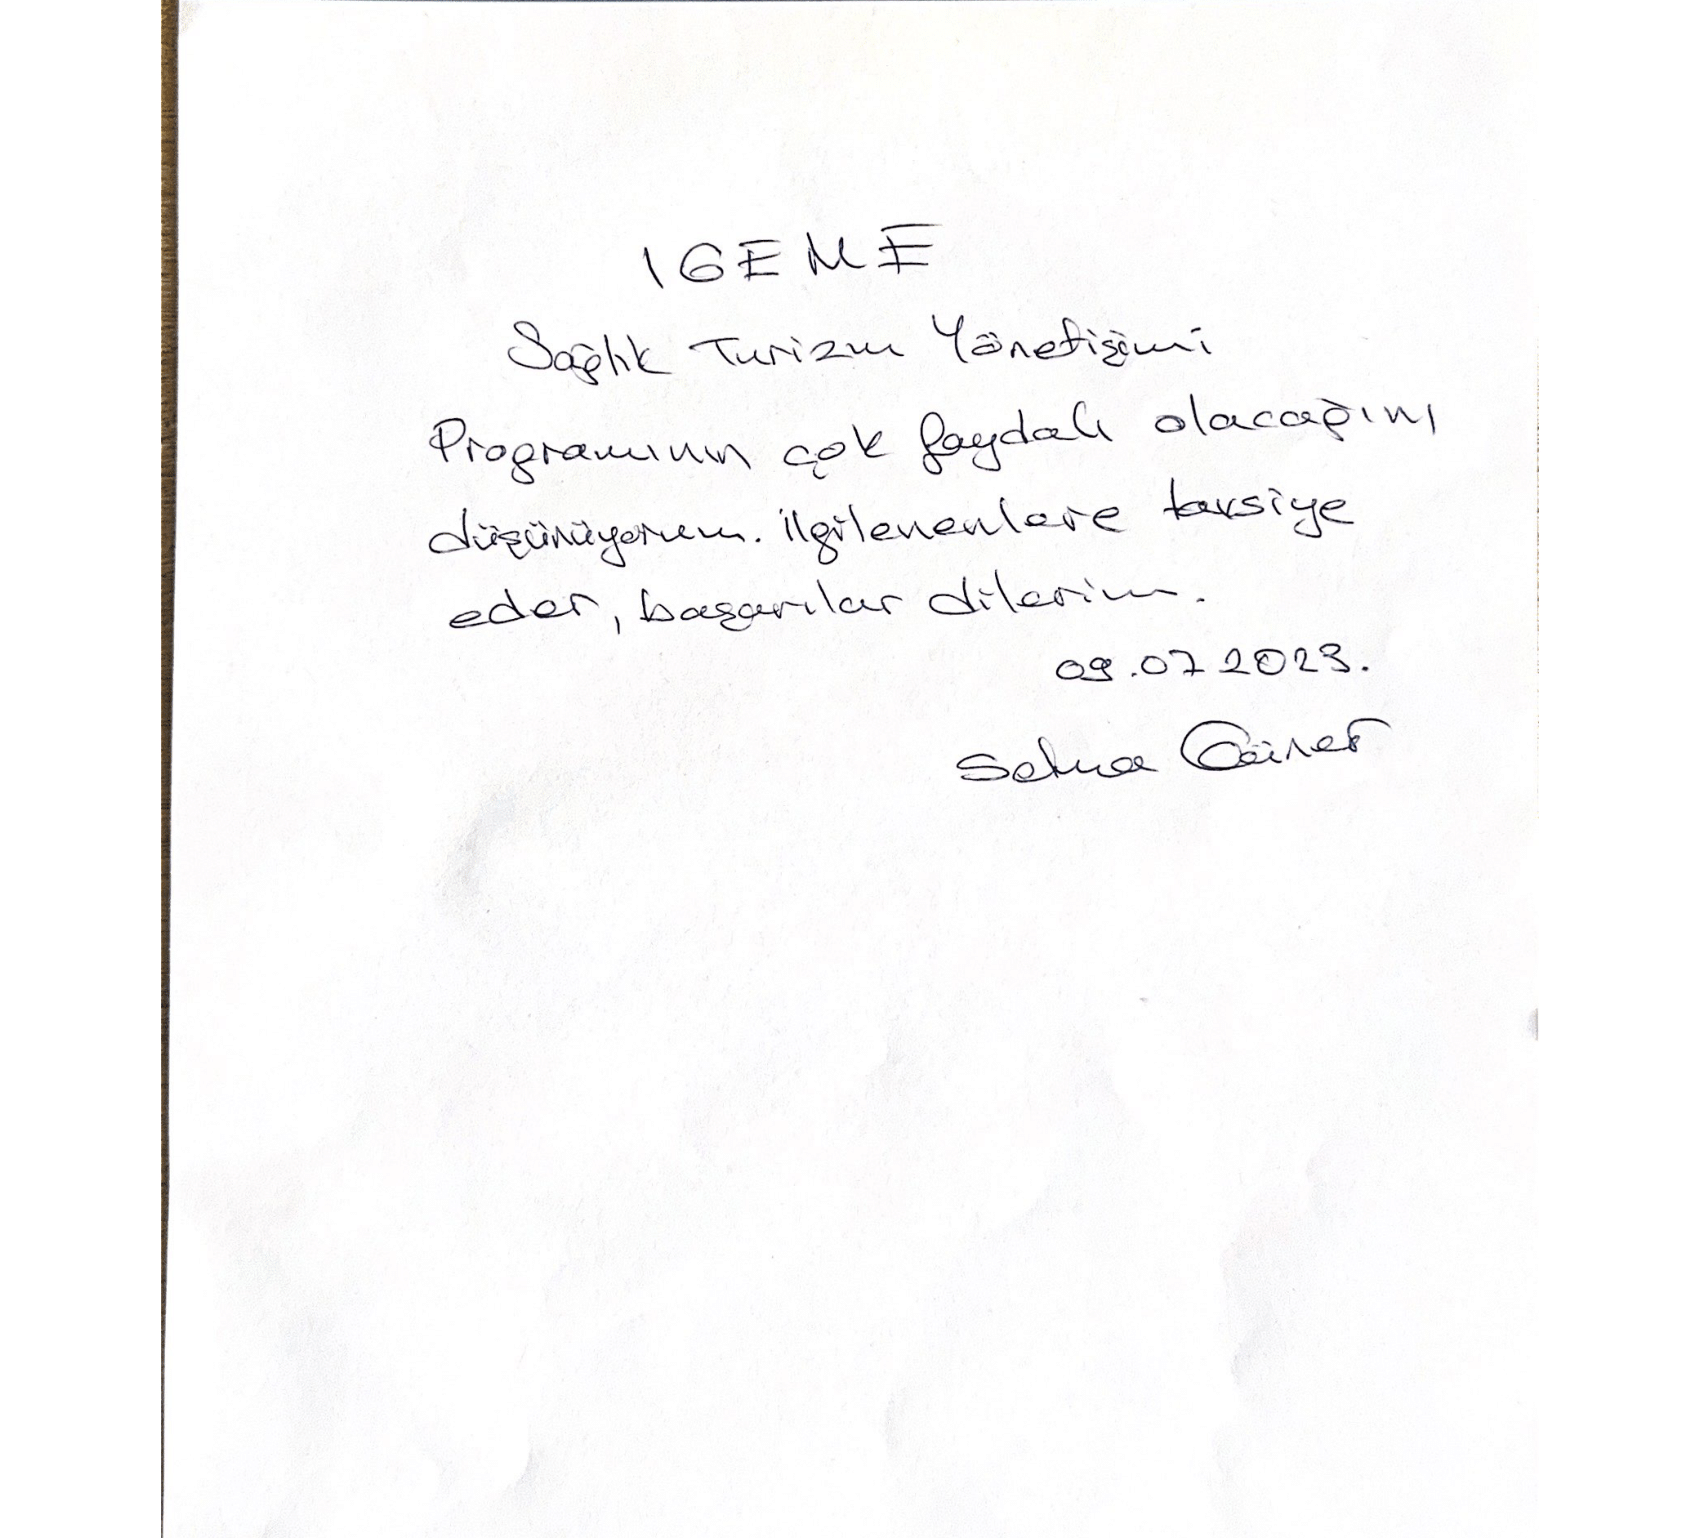 IGEME
Sağlık Turizm Yönetişimi
Programının çok faydalı olacağını
düşünüyorum. ilgilenenlere tavsiye
eder, başarılar dilerim.
09.07 2023.
Selma Güner